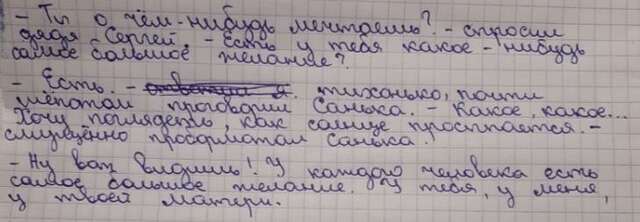 - Ты о чём-нибудь мечтаешь? - спросил
дядя Сергей. - Есть у тебя какое-нибудь
самое большое желание?
- Есть. - ответил я. тихонько, почти
шёпотом проговорил Санька. - Какое, какое...
Хочу поглядеть, как солнце просыпается. -
смущённо пробормотал Санька.
- Ну вот видишь! У каждого человека есть
самое большое желание. У тебя, у меня,
у твоей матери.